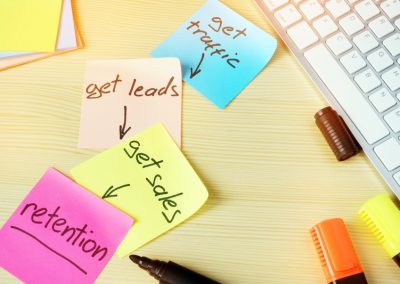 get
traffic
get leads
get
sales
retention